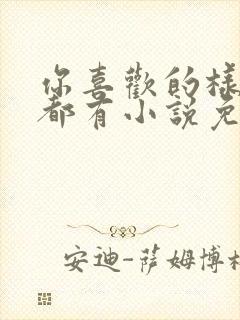 你喜歡的樣
都有小說免
安迪-薩姆博格